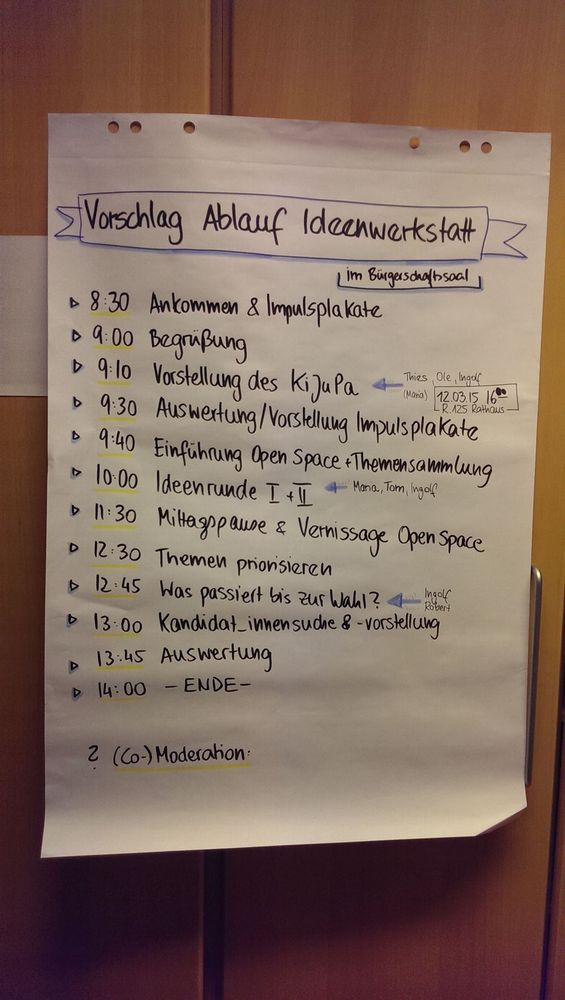 Vorschlag Ablauf Ideenwerkstatt
im Bürgerschaftssaal
8:30 Ankommen & Impulsplakate
9:00 Begrüßung
9:10 Vorstellung des KiJuPa
Thies, Ole, Ingolf
(Maria)
12.03.15 16⁰⁰
R.125 Rathaus
9:30 Auswertung/Vorstellung Impulsplakate
9:40 Einführung Open Space + Themensammlung
10:00 Ideenrunde I + II
Maria, Tom, Ingolf
11:30 Mittagspause & Vernissage Open Space
12:30 Themen priorisieren
12:45 Was passiert bis zur Wahl?
Ingolf
Robert
13:00 Kandidat_innensuche & -vorstellung
13:45 Auswertung
14:00 - ENDE -
? (Co-)Moderation: